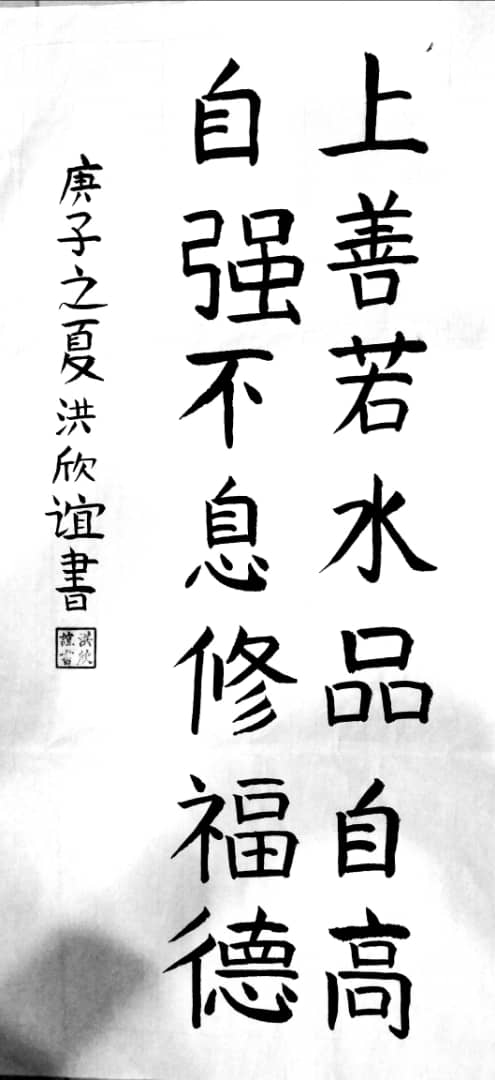 上善若水品自高
自强不息修福德
庚子之夏洪欣谊書